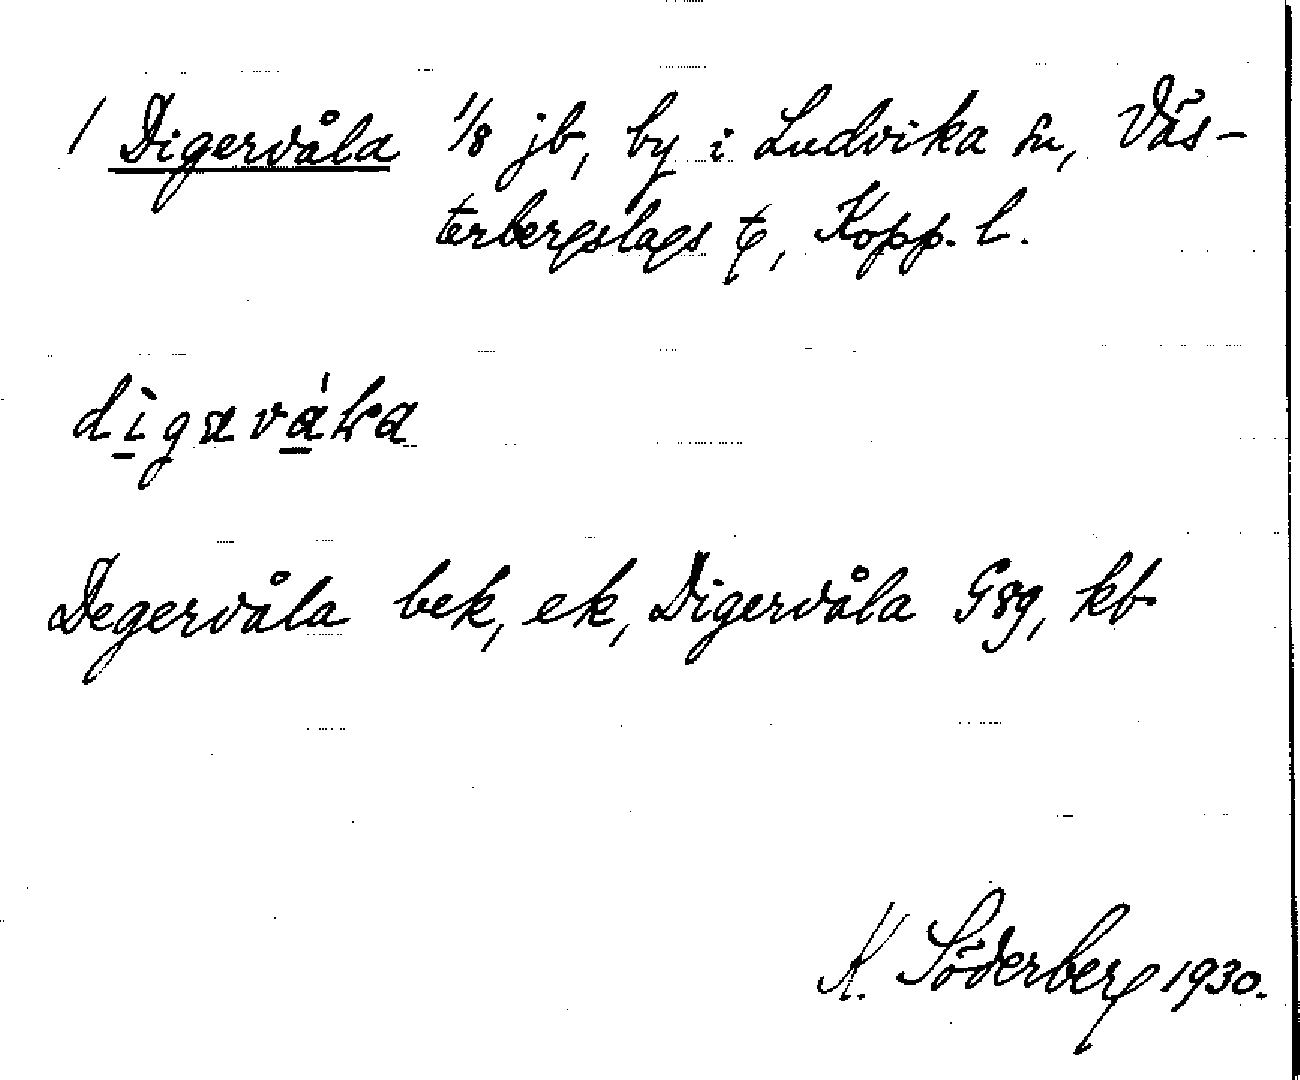 / Digervåla 1/8 jb, by i Ludvika sn, Väs-
terbergslags tg, Kopp. l.
Degervåla bek, ek, Digervåla Gsg, kb
K. Söderberg 1930.